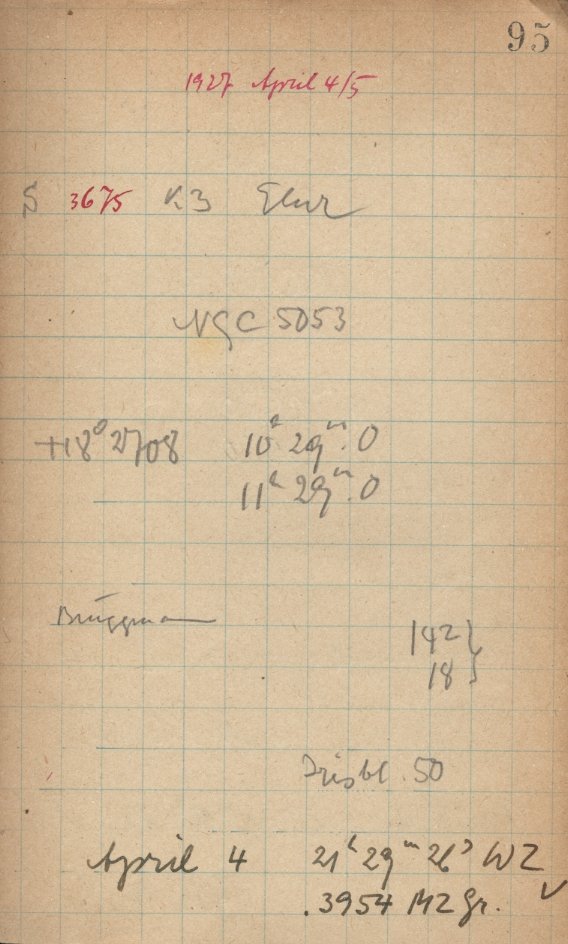 95
1927 April 4/5
S 3675 K3
NGC 5053
+18° 2708 10ʰ 29ᵐ.0
11ʰ 29ᵐ.0
Brüggmann
142 }
18
Irisbl. 50
April 4 21ʰ 29ᵐ 26ˢ WZ
.3954 MZ Gr. ✓